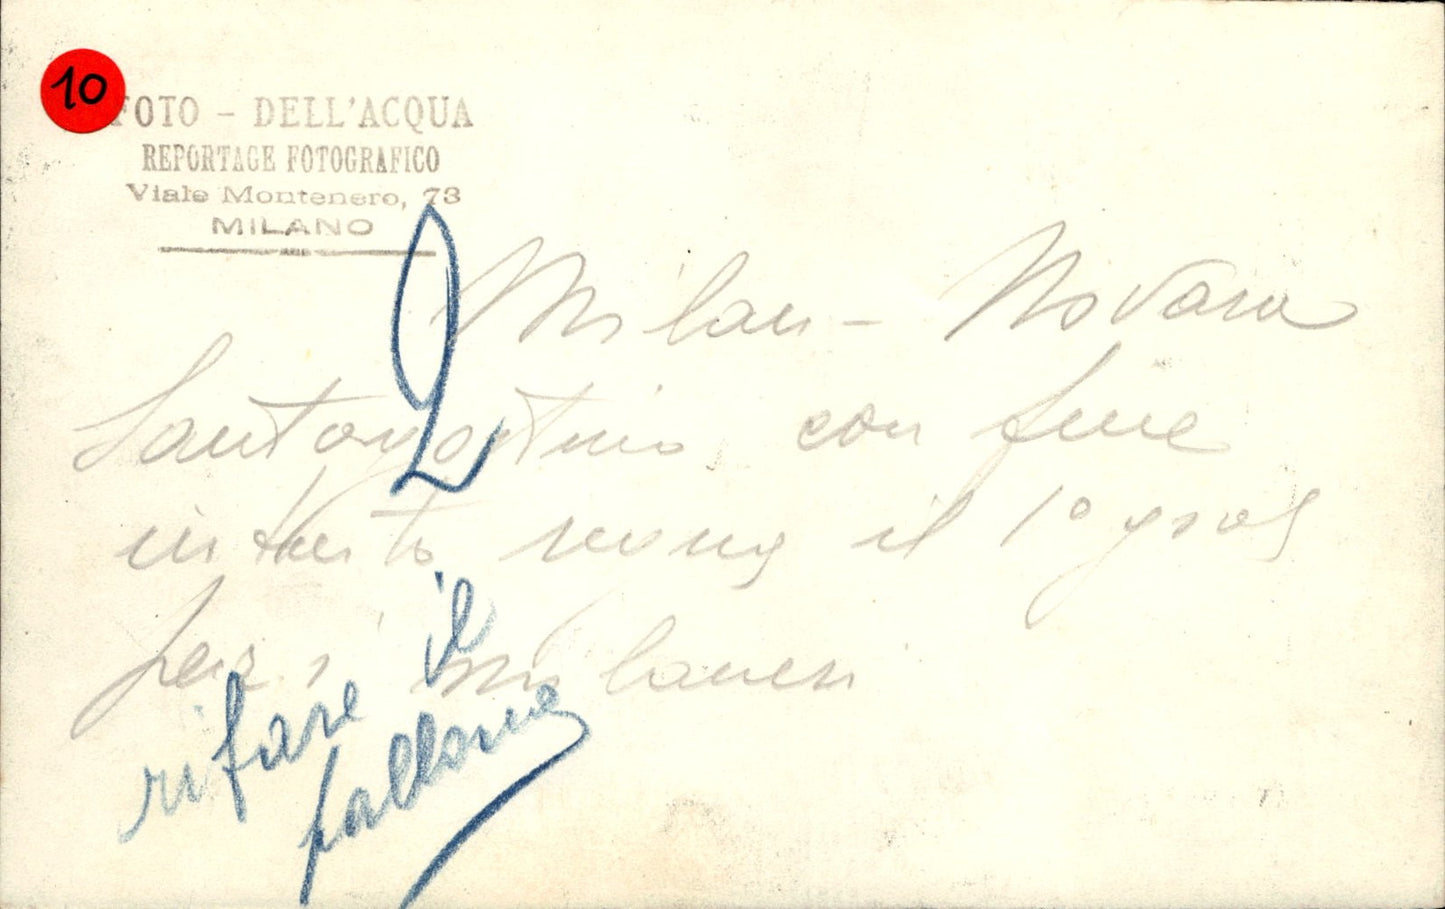 10
FOTO - DELL'ACQUA
REPORTAGE FOTOGRAFICO
Viale Montenero, 73
MILANO
2
Milan - Novara
Santagostino con fine
intuito segna il 1° goal
per i milanesi
rifare il
pallone